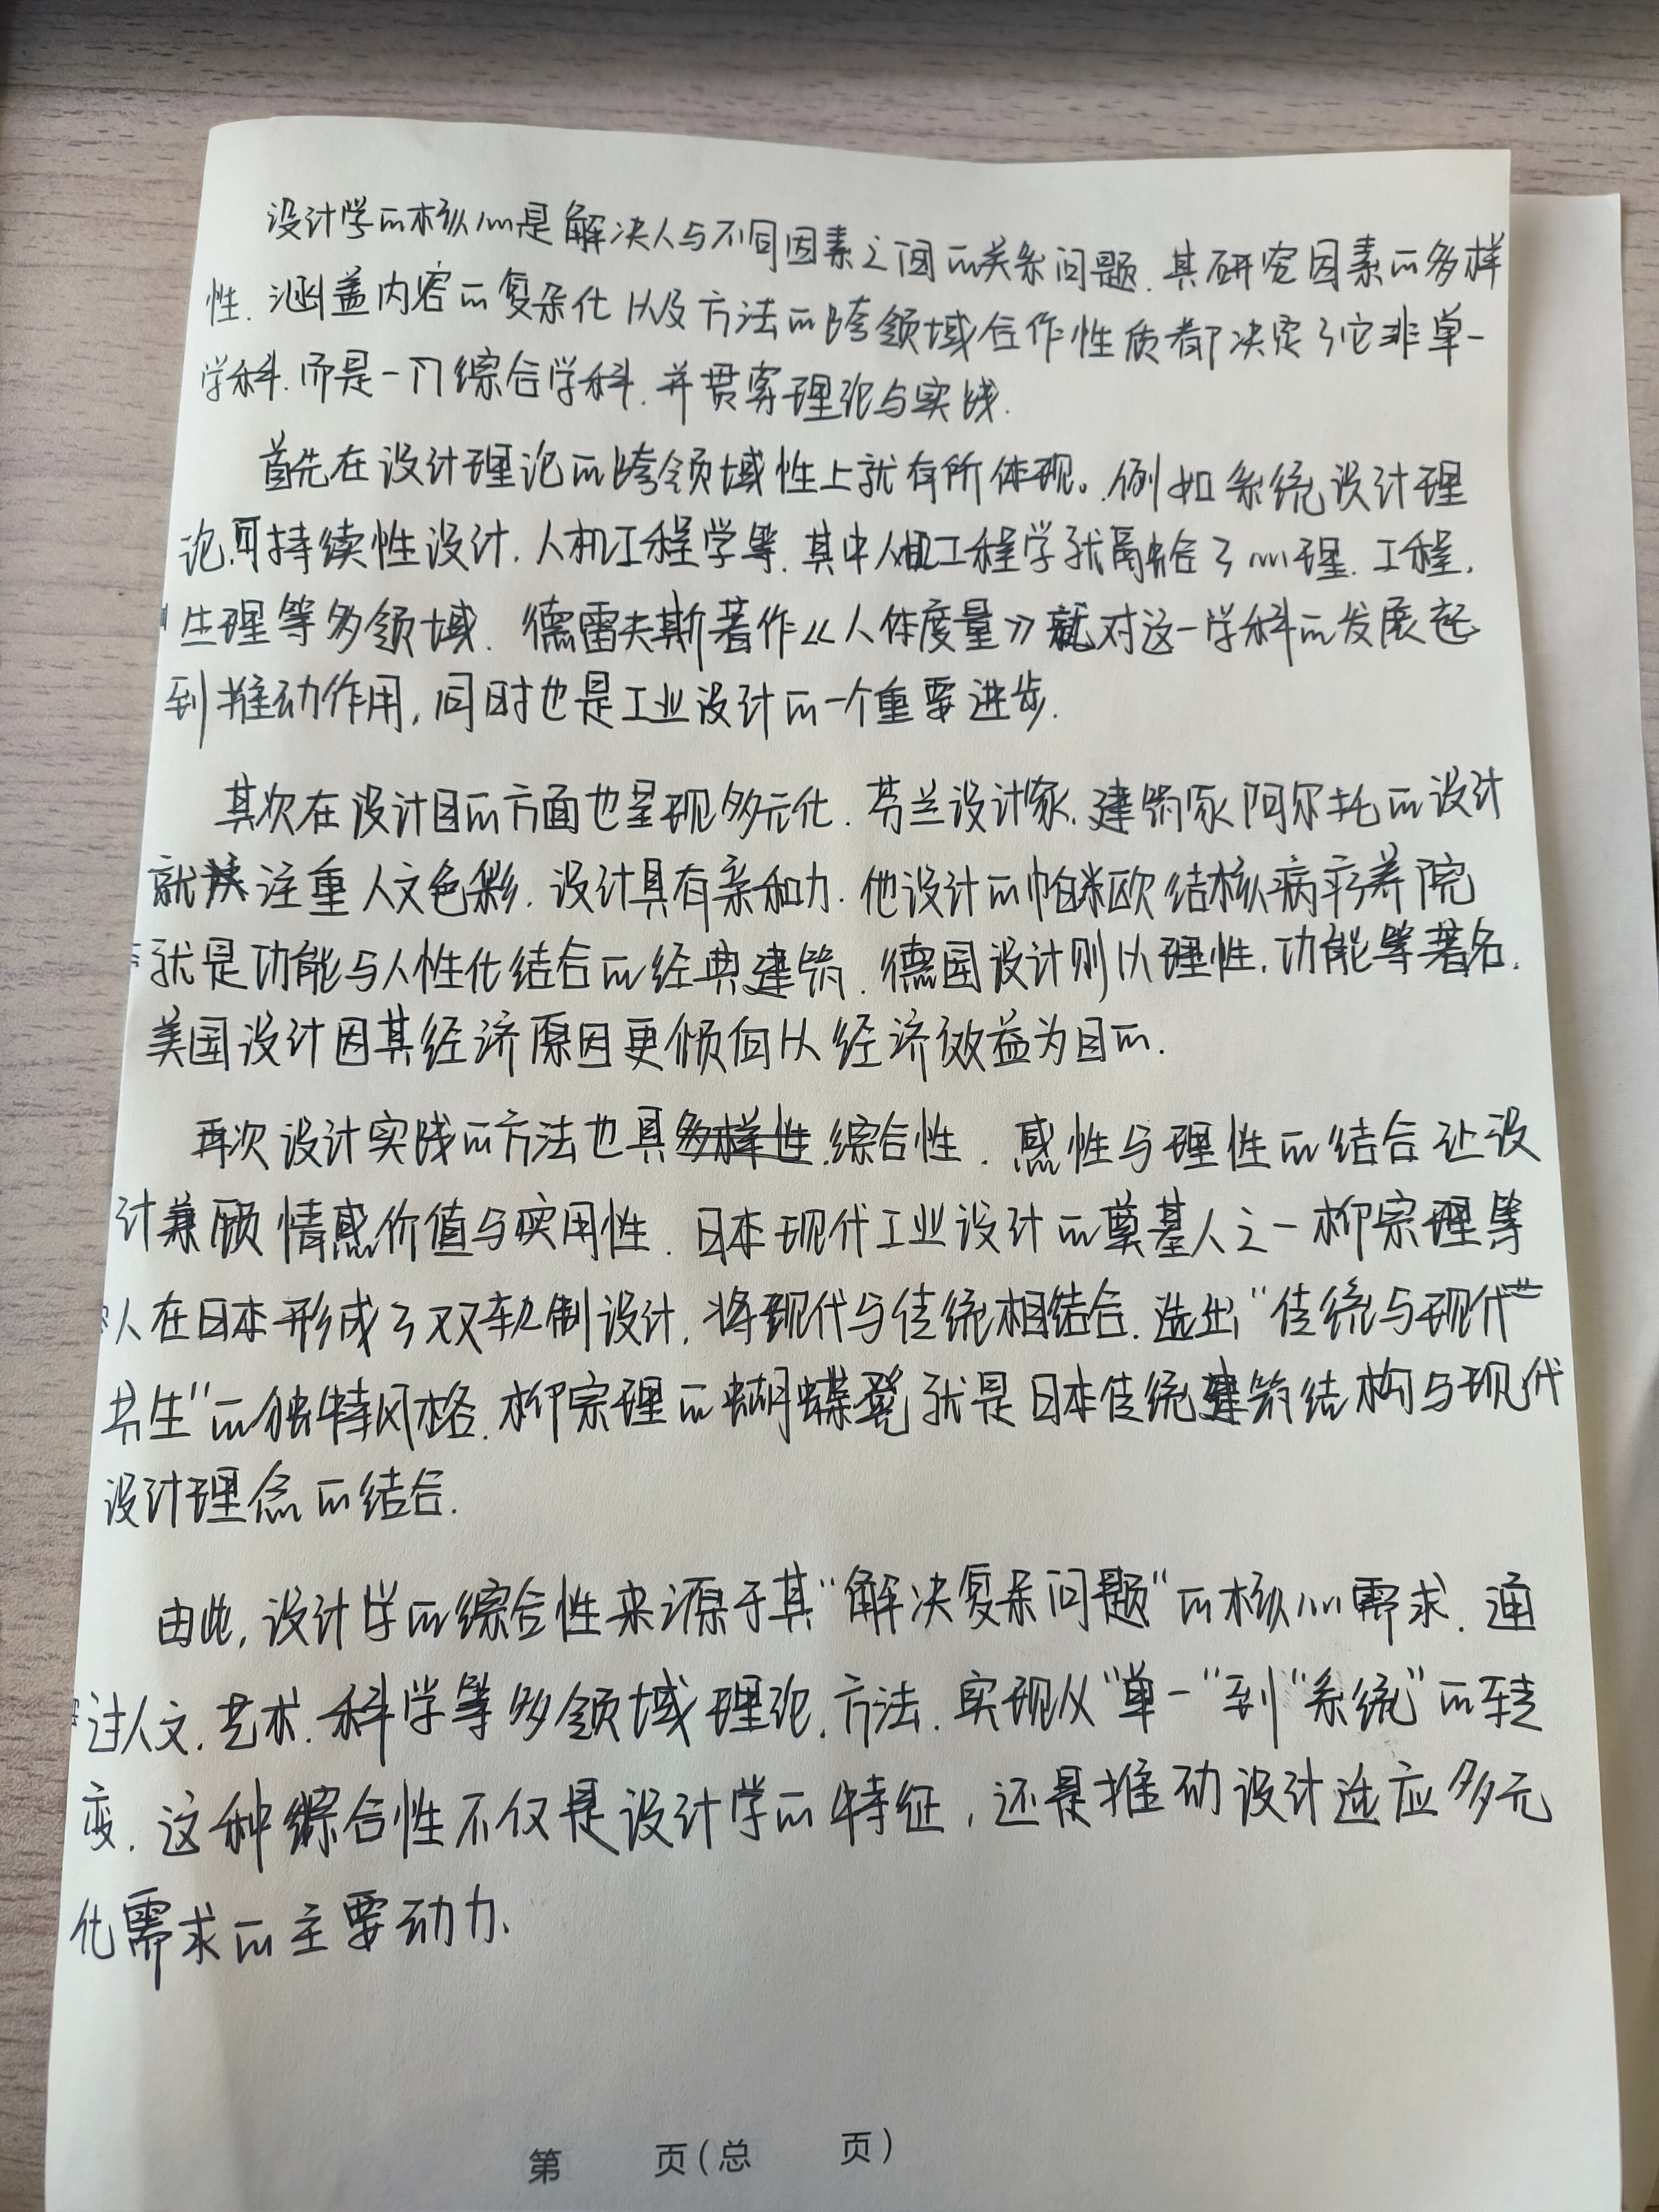 设计学的核心是解决人与不同因素之间的关系问题.其研究因素的多样
性.涵盖内容的复杂化以及方法的跨领域合作性质都决定了它非单一
学科.而是一门综合学科.并贯穿理论与实践.
首先在设计理论的跨领域性上就有所体现。例如系统设计理
论.可持续性设计.人机工程学等.其中人机工程学就融合了心理.工程.
生理等多领域.德雷夫斯著作《人体度量》就对这一学科的发展起
到推动作用,同时也是工业设计的一个重要进步.
其次在设计目的方面也呈现多元化.芬兰设计家.建筑家阿尔托的设计
就注重人文色彩.设计具有亲和力.他设计的帕米欧结核病疗养院
就是功能与人性化结合的经典建筑.德国设计则以理性.功能等著名.
美国设计因其经济原因更倾向以经济效益为目的.
再次设计实践的方法也具多样性.综合性.感性与理性的结合让设
计兼顾情感价值与实用性.日本现代工业设计的奠基人之一柳宗理等
人在日本形成了双轨制设计,将现代与传统相结合.造出“传统与现代共
生”的独特风格.柳宗理的蝴蝶凳就是日本传统建筑结构与现代
设计理念的结合.
由此,设计学的综合性来源于其“解决复杂问题”的核心需求.通
过人文.艺术.科学等多领域理论.方法.实现从“单一”到“系统”的转
变.这种综合性不仅是设计学的特征,还是推动设计适应多元
化需求的主要动力.
第 页(总 页)